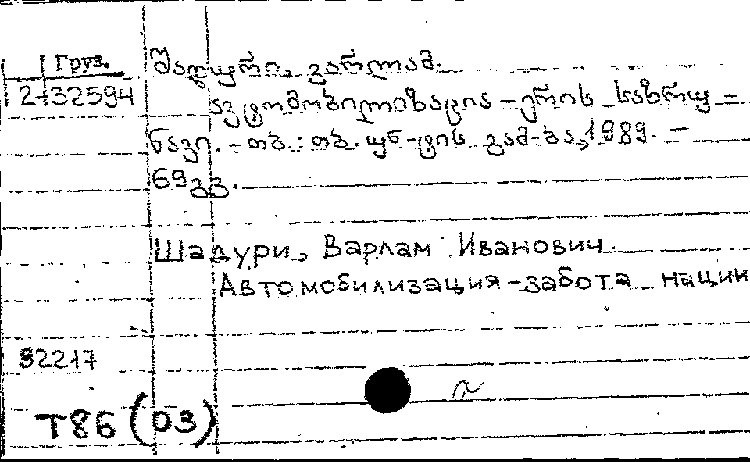 Груз.
შადური, ვარლამ.
2-132594
ავტომობილიზაცია - ერის საზრუ-
ნავი. - თბ.: თბ. უნ-ტის გამ-ბა, 1989. -
69გვ.
Шадури, Варлам Иванович.
Автомобилизация - забота нации
92217
Т86(03)